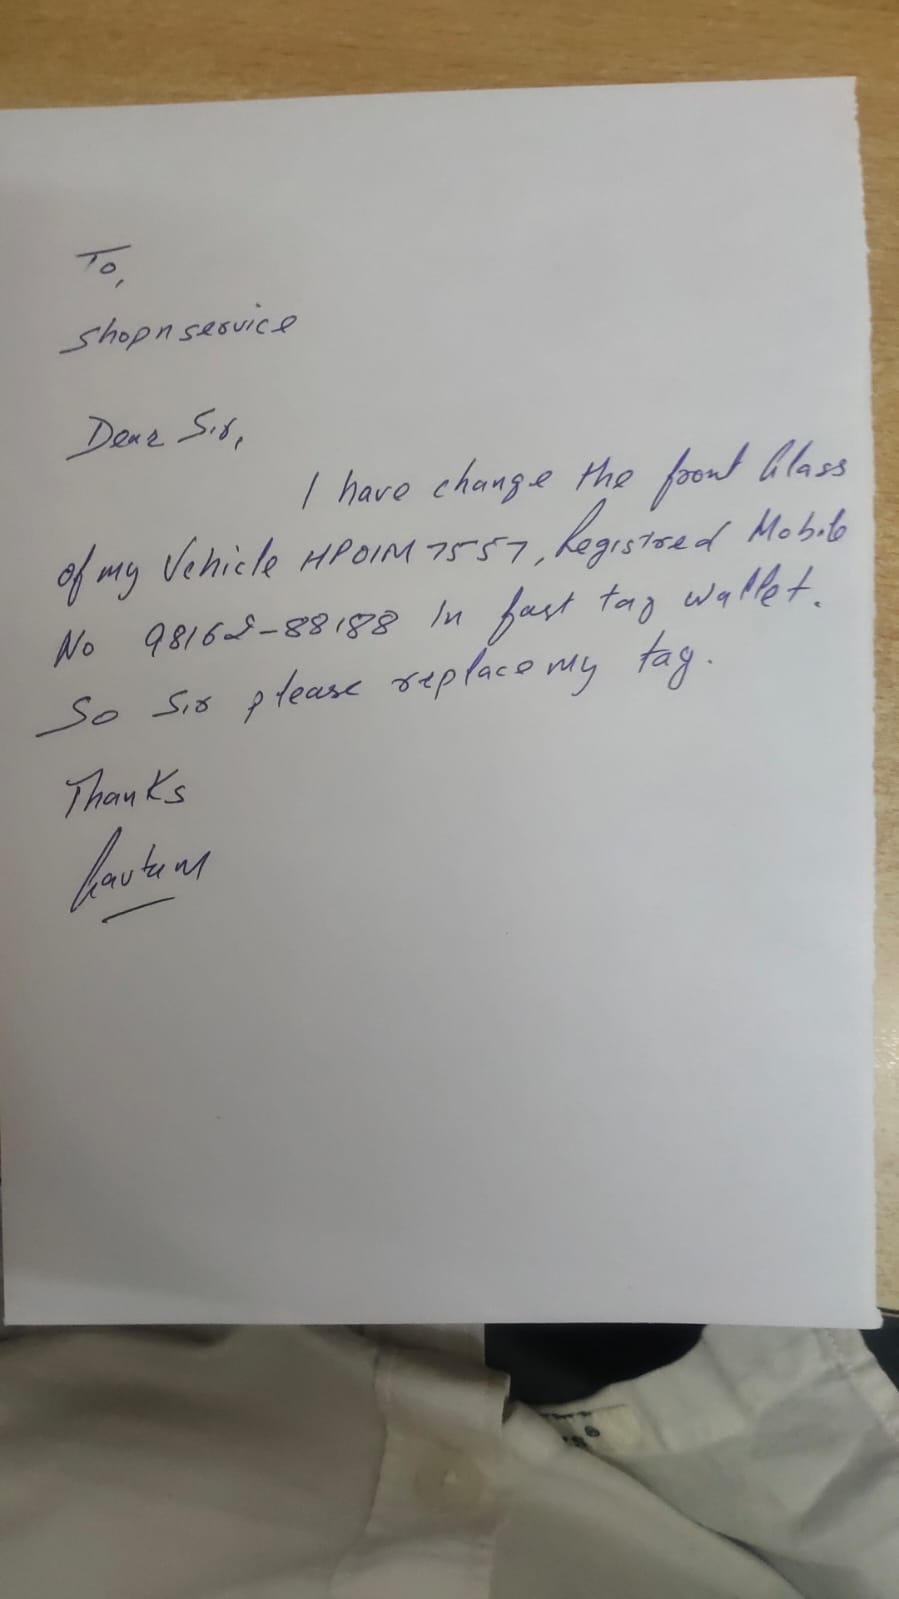 To,
shopnservice
Dear Sir,
I have change the front Glass
of my Vehicle HP01M7557, Registred Mobile
No 98162-88188 In fast tag wallet.
So Sir please replace my tag.
Thanks
Gautam